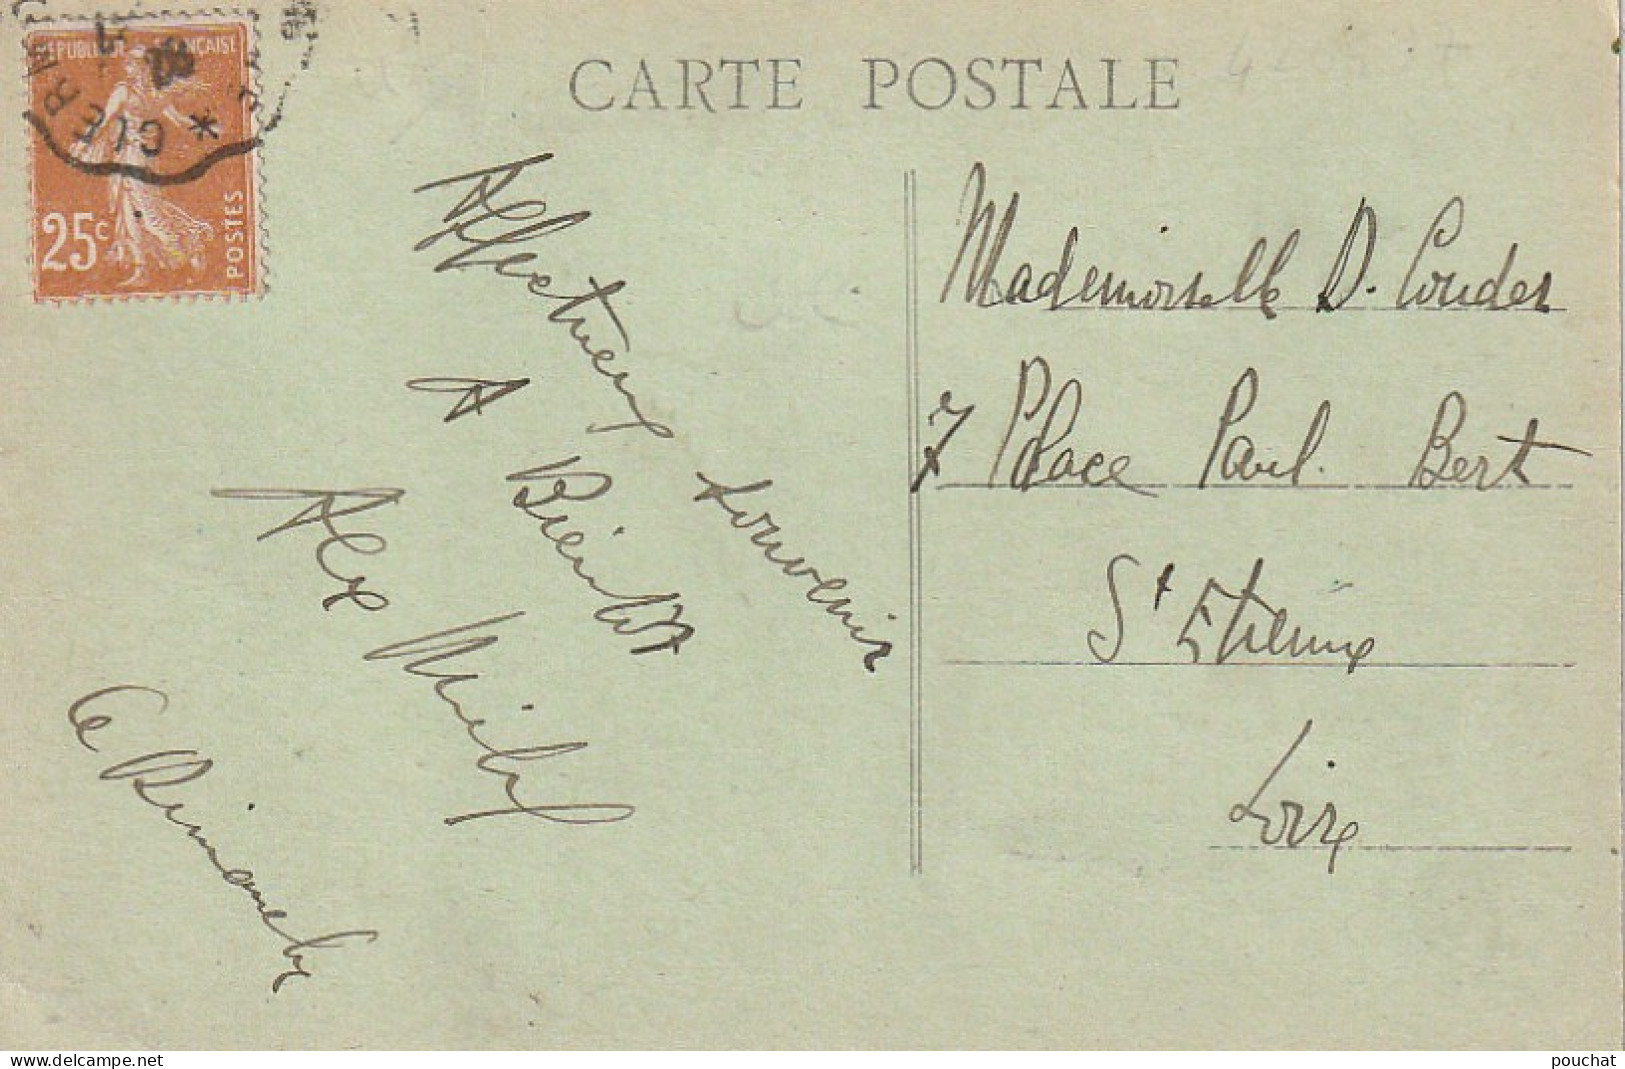 RÉPUBLIQUE FRANÇAISE
25c
POSTES
CARTE POSTALE
Affectueux souvenir
A Bientôt
Alex
Ce Dimanche
Mademoiselle D. Couder
7 Place Paul Bert
St Etienne
Loire
www.delcampe.net
pouchat